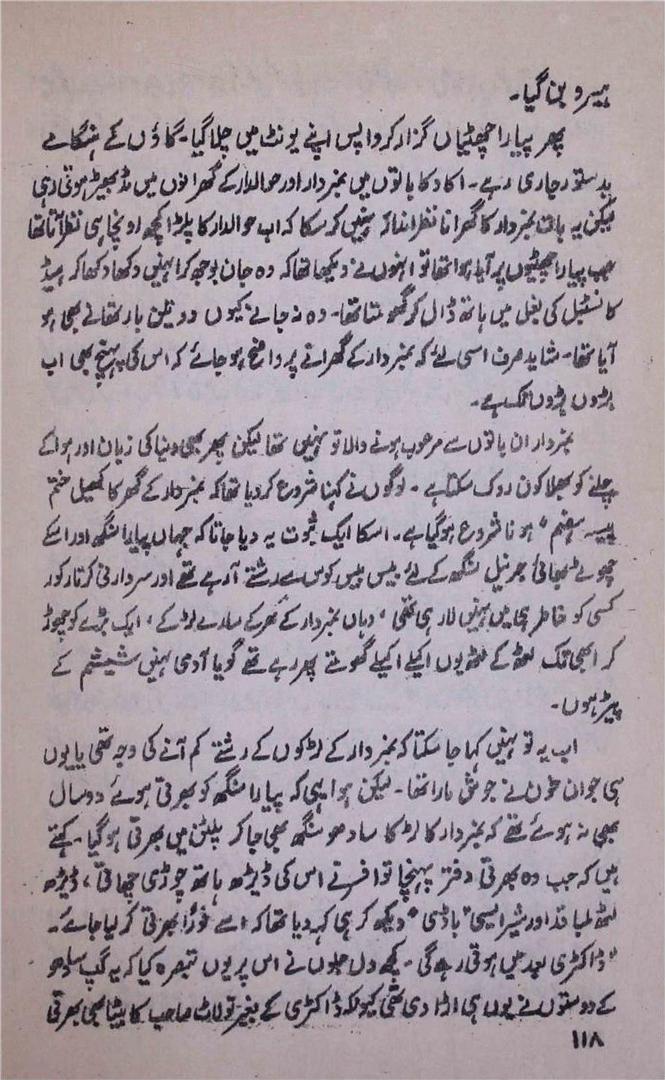 ہیرو بن گیا۔
پھر پیارا چھٹیاں گزار کر واپس اپنے یونٹ میں چلا گیا۔ گاؤں کے ہنگامے
بدستور جاری رہے۔ اکا دکا باتوں میں نمبردار اور حوالدار کے گھرانوں میں مڈبھیڑ ہوتی رہی
لیکن یہ بات نمبردار کا گھرانا نظر انداز نہیں کر سکا کہ اب حوالدار کا پلڑا کچھ اونچا ہی نظر آتا تھا
جب پیارا چھٹیوں پر آیا ہوا تھا تو انہوں نے دیکھا تھا کہ وہ جان بوجھ کر انہیں دکھا دکھا کر ہیڈ
کانسٹبل کی بغل میں ہاتھ ڈال کر گھومتا تھا۔ وہ نہ جانے کیوں دو تین بار تھانے بھی ہو
آیا تھا۔ شاید صرف اسی لئے کہ نمبردار کے گھرانے پر واضح ہو جائے کہ اس کی پہنچ بھی اب
بڑوں بڑوں تک ہے۔
نمبردار ان باتوں سے مرعوب ہونے والا تو نہیں تھا لیکن پھر بھی دنیا کی زبان اور ہوا کے
چلنے کو بھلا کون روک سکتا ہے۔ لوگوں نے کہنا شروع کر دیا تھا کہ نمبردار کے گھر کا کھیل ختم
پیسہ ہضم" ہونا شروع ہو گیا ہے۔ اسکا ایک ثبوت یہ دیا جاتا کہ جہاں پیارا سنگھ اور اسکے
چھوٹے بھائی جرنیل سنگھ کے لئے بیس بیس کوس سے رشتے آ رہے تھے اور سردارنی کرتار کور
کسی کو خاطر ہی میں نہیں لا رہی تھی، وہاں نمبردار کے گھر کے سارے لڑکے، ایک بڑے کو چھوڑ
کر ابھی تک لٹھ کے لٹھ یوں اکیلے اکیلے گھومتے پھر رہے تھے گویا آدمی نہیں شیشم کے
پیڑ ہوں۔
اب یہ تو نہیں کہا جا سکتا کہ نمبردار کے لڑکوں کے رشتے کم آنے کی وجہ تھی یا یوں
ہی جوان خون نے جوش مارا تھا۔ لیکن ہوا یہی کہ پیارا سنگھ کو بھرتی ہوئے دو سال
بھی نہ ہوئے تھے کہ نمبردار کا لڑکا سادھو سنگھ بھی جا کر پلٹن میں بھرتی ہو گیا۔ کہتے
ہیں کہ جب وہ بھرتی دفتر پہنچا تو افسر نے اس کی ڈیڑھ ہاتھ چوڑی چھاتی، ڈیڑھ
لٹھ لمبا قد اور شیر ایسی "باڈی" دیکھ کر ہی کہہ دیا تھا کہ اسے فوراً بھرتی کر لیا جائے۔
"ڈاکٹری بعد میں ہوتی رہے گی۔ کچھ دل جلوں نے اس پر یوں تبصرہ کیا کہ یہ گپ سادھو
کے دوستوں نے یوں ہی اڑا دی تھی کیونکہ ڈاکٹری کے بغیر تو لاٹ صاحب کا بیٹا بھی بھرتی
۱۱۸